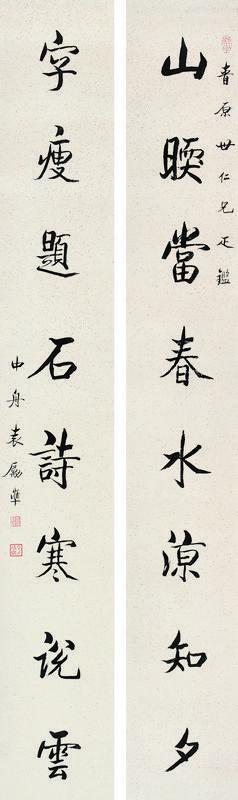 原世仁兄正鑑
山暖當春水涼知夕
字瘦題石詩寒說雲
中舟袁勵準